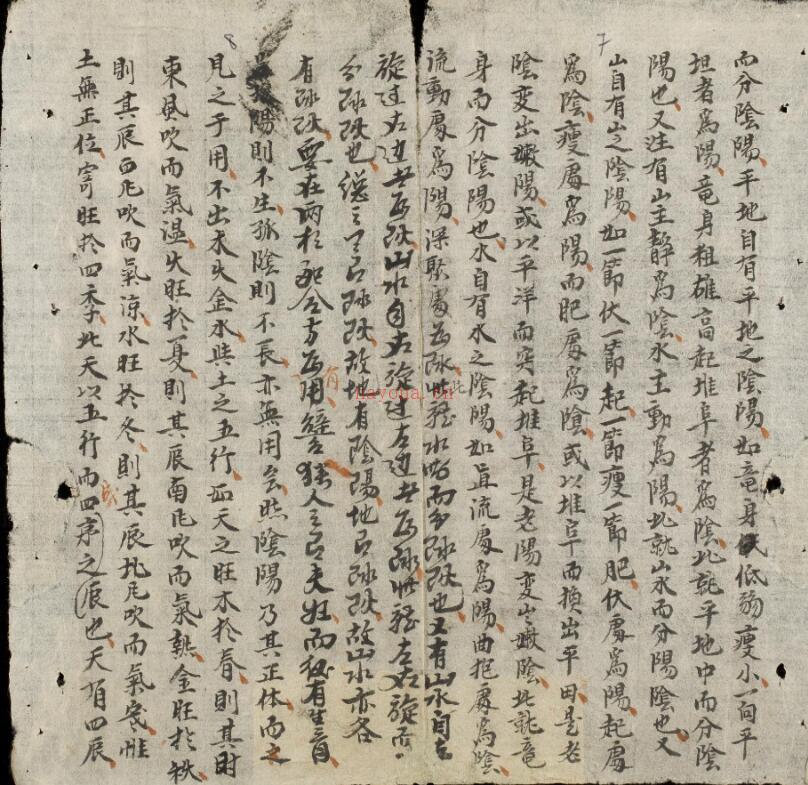 7
8
而分陰陽平地自有平地之陰陽如竜身低弱瘦小一向平
坦者為陽竜身粗雄高起堆阜者為陰此就平地中而分陰
陽也又注有山主靜為陰水主動為陽此就山水而分陽陰也又
山自有山之陰陽如一節伏一節起一節瘦一節肥伏處為陽起處
為陰瘦處為陽而肥處為陰或以堆阜而換出平田是老
陰变出嫩陽或以平洋而突起堆阜是老陽变出嫩陰此就竜
身而分陰陽也水自有水之陰陽如直流處為陽曲抱處為陰
流動處為陽深聚處為陰此就水而分陰陽也又有山水自
旋过右边為陽山水自右旋过左边為陰左右旋而
分陰陽也総之天有陰陽故地有陰陽地有陰陽故山水亦各
有陰陽要在兩相配合方為用譬有猶人之有夫妇而後有生育
陽則不生孤陰則不長亦無用矣然陰陽乃其正体而之
見之于用不出木火金水與土之五行而天之旺木於春則其時
東風吹而氣温火旺於夏則其辰南風吹而氣熱金旺於秋
則其辰西風吹而氣凉水旺於冬則其辰北風吹而氣寒惟
土無正位寄旺於四季此天以五行而四序之辰也天有四辰
nayona.cn